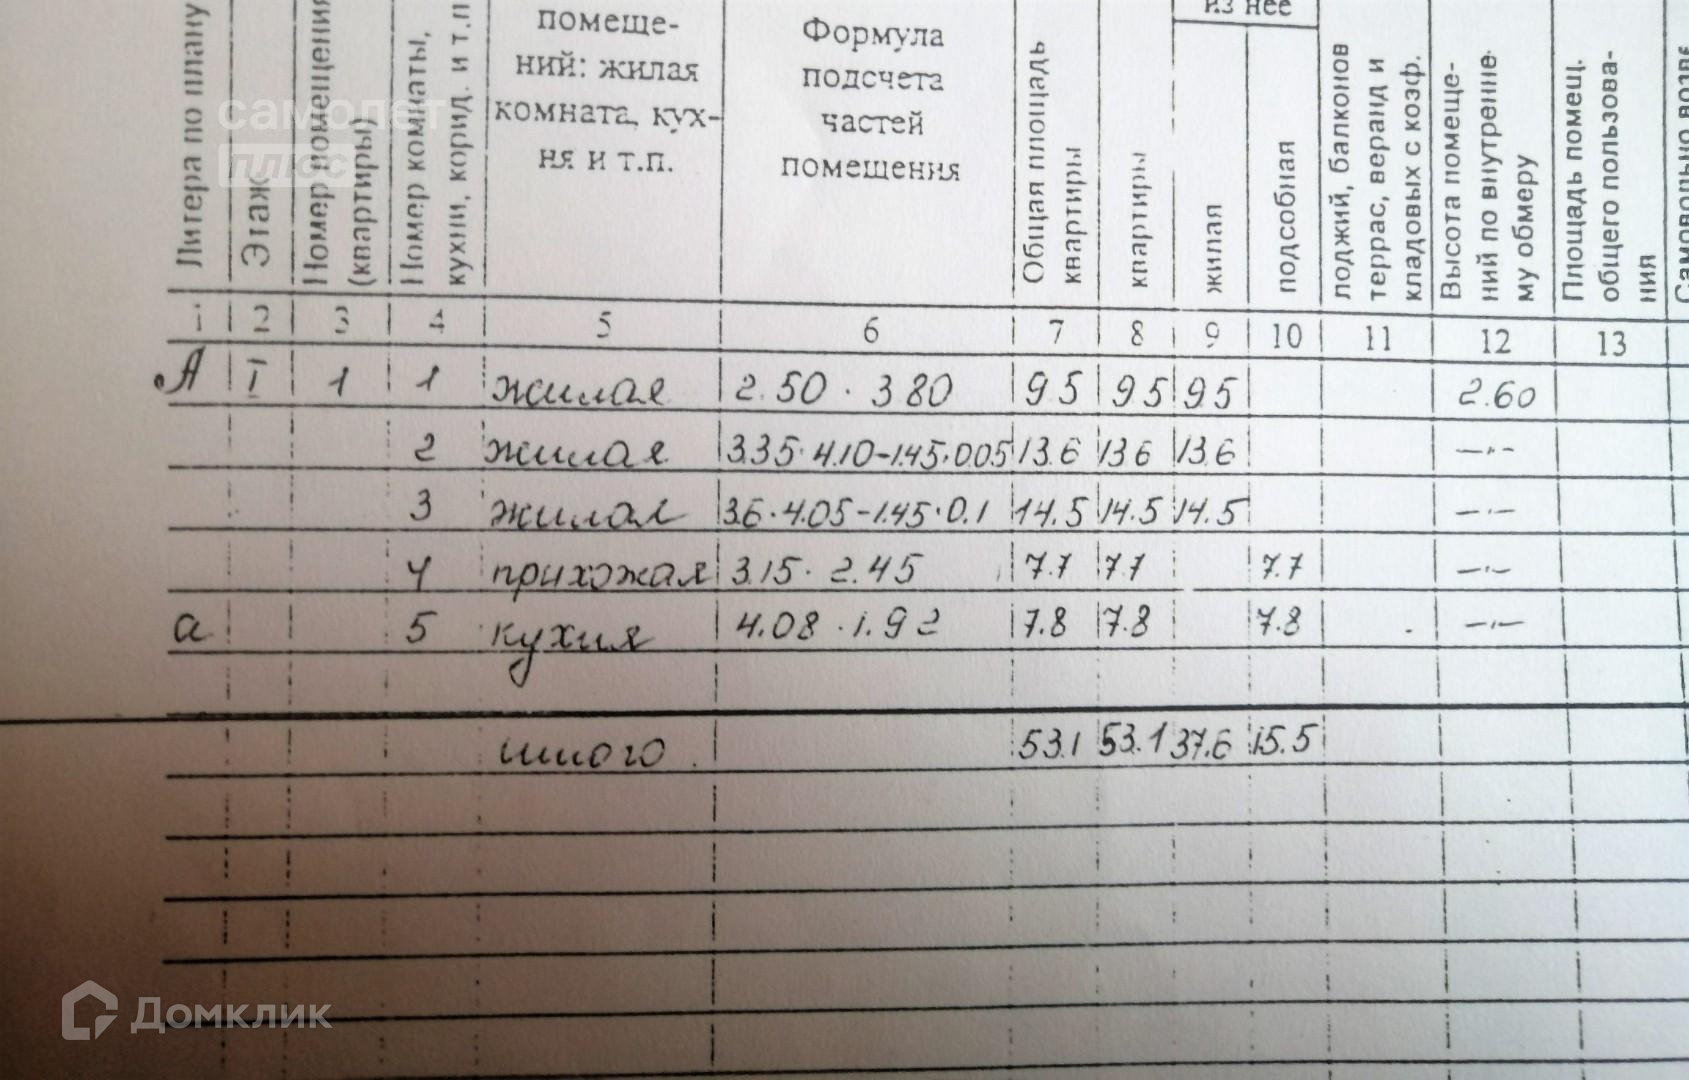 из нее
Литера по плану
Этаж
Номер помещения
(квартиры)
Номер комнаты,
кухни, корид. и т.п.
помеще-
ний: жилая
комната, кух-
ня и т.п.
Формула
подсчета
частей
помещения
Общая площадь
квартиры
квартиры
жилая
подсобная
лоджий, балконов
террас, веранд и
кладовых с коэф.
Высота помеще-
ний по внутренне-
му обмеру
Площадь помещ.
общего пользова-
ния
Самовольно
самолет
плюс
1 2 3 4 5 6 7 8 9 10 11 12 13
А I 1 1 жилая 2.50 · 3.80 9.5 9.5 9.5 2.60
2 жилая 3.35 · 4.10 - 1.45 · 0.05 13.6 13.6 13.6 —"—
3 жилая 3.6 · 4.05 - 1.45 · 0.1 14.5 14.5 14.5 —"—
4 прихожая 3.15 · 2.45 7.7 7.7 7.7 —"—
а 5 кухня 4.08 · 1.92 7.8 7.8 7.8 —"—
итого 53.1 53.1 37.6 15.5
Домклик